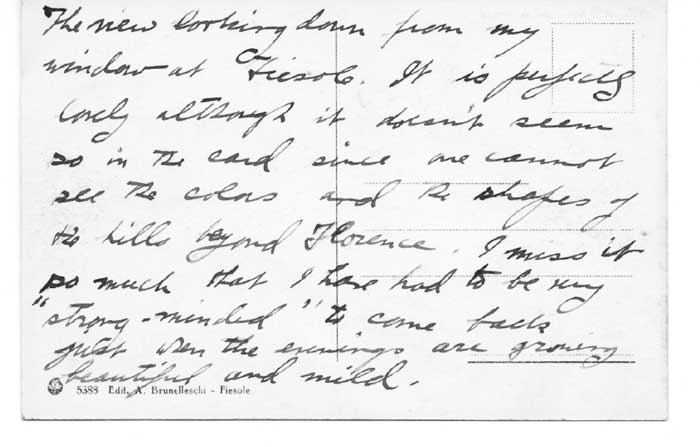 The view looking down from my
window at Fiesole. It is perfectly
lovely although it doesn't seem
so in the card since one cannot
see the colors and the shapes of
the hills beyond Florence. I miss it
so much that I have had to be very
"strong-minded" to come back
just when the evenings are growing
beautiful and mild.
5388 Edit. A. Brunelleschi - Fiesole